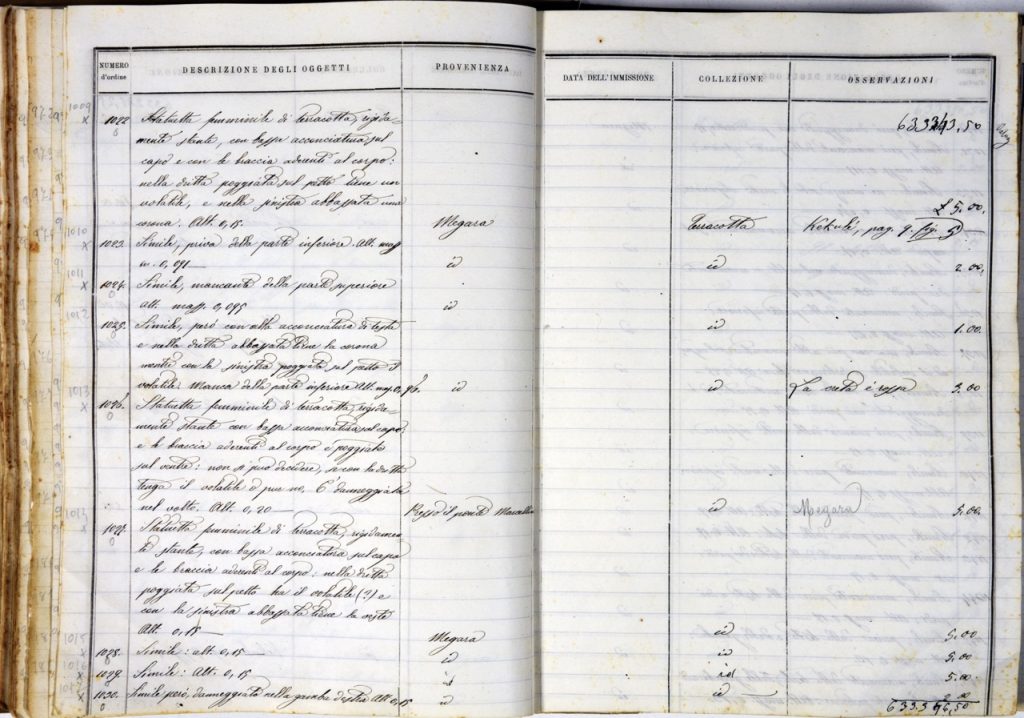 NUMERO d'ordine
DESCRIZIONE DEGLI OGGETTI
PROVENIENZA
DATA DELL'IMMISSIONE
COLLEZIONE
OSSERVAZIONI
633343,50
1009
1022 Statuetta femminile di terracotta, rigida-
mente stante, con bassa acconciatura sul
capo e con le braccia aderenti al corpo:
nella dritta poggiata sul petto tiene un
volatile, e nella sinistra abbassata una
corona. Alt. 0,15. Megara Terracotta Kekulé, pag. 9. fig. 5 £ 5.00.
1010
1023. Simile, priva della parte inferiore. Alt. mass
m. 0,091 id id 2.00.
1011
1024. Simile, mancante della parte superiore
Alt. mass. 0,095 id id 1.00.
1012
1025. Simile, però con alta acconciatura di testa
e nella dritta abbassata tiene la corona
mentre con la sinistra poggiata sul petto il
volatile. Manca della parte inferiore Alt. mass. id id La creta è rossa 3.00
1013
1026. Statuetta femminile di terracotta, rigida-
mente stante con bassa acconciatura sul capo,
e le braccia aderenti al corpo e poggiate
sul ventre: non si può decidere, se con la dritta
tenga il volatile o pure no. È danneggiata
nel volto. Alt. 0,20 Presso il ponte Marcellino id Megara 5.00.
1027. Statuetta femminile di terracotta, rigidamen-
te stante, con bassa acconciatura sul capo
e le braccia aderenti al corpo: nella dritta
poggiata sul petto ha il volatile (?) e
con la sinistra abbassata tiene la veste
Alt. 0,15 Megara id 5.00
1015
1028. Simile: alt. 0,15 id id 5.00
1016
1029. Simile: Alt. 0,15 id id 5.00
1030. Simile però, danneggiata nella gamba destra Alt 0,15 id id